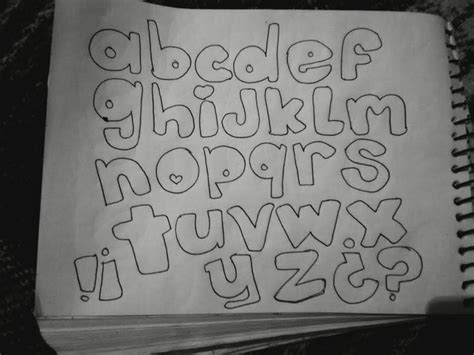 abcdef
ghijklm
nopqrs
tuvwx
!¡ yz¿?